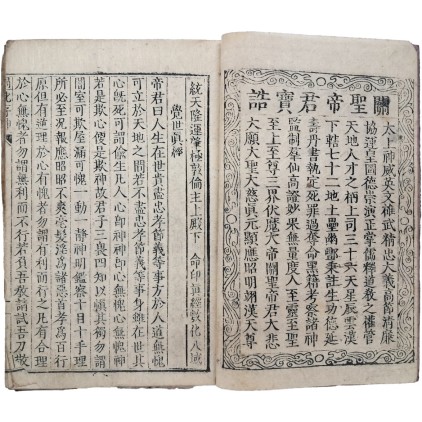 關聖帝君寶誥
太上神威英文雄武精忠大義高節清廉
協運皇圖德崇演正掌儒釋道教之權管
天地人才之柄上司三十六天星辰雲漢
下轄七十二地土壘幽酆秉註生功德延
壽丹書執定死罪過奪命黑籍考察諸神
監制群仙高證妙果無量度人至靈至聖
三界伏魔大帝關聖帝君大悲
大願大聖大慈真元顯應昭明翊漢天尊
統天隆運肇極敦倫主上殿下命印
覺世真經
帝君曰人生在世貴盡忠孝節義等事方於人道無愧
可立於天地之間若不盡忠孝節義等事身雖在世其
心既死可謂偷生凡人心即神神即心無愧心無愧神
若是欺心便是欺神故君子三畏四知以慎其獨勿謂
闇室可欺屋漏可愧一動一靜神明鑑察十目十手理
所必至況報應昭昭不爽毫髮淫為諸惡首孝為百行
原但有逆理於心有愧者勿謂有利而行之凡有合理
於心無愧者勿謂無利而不行若負吾教請試吾刀敬